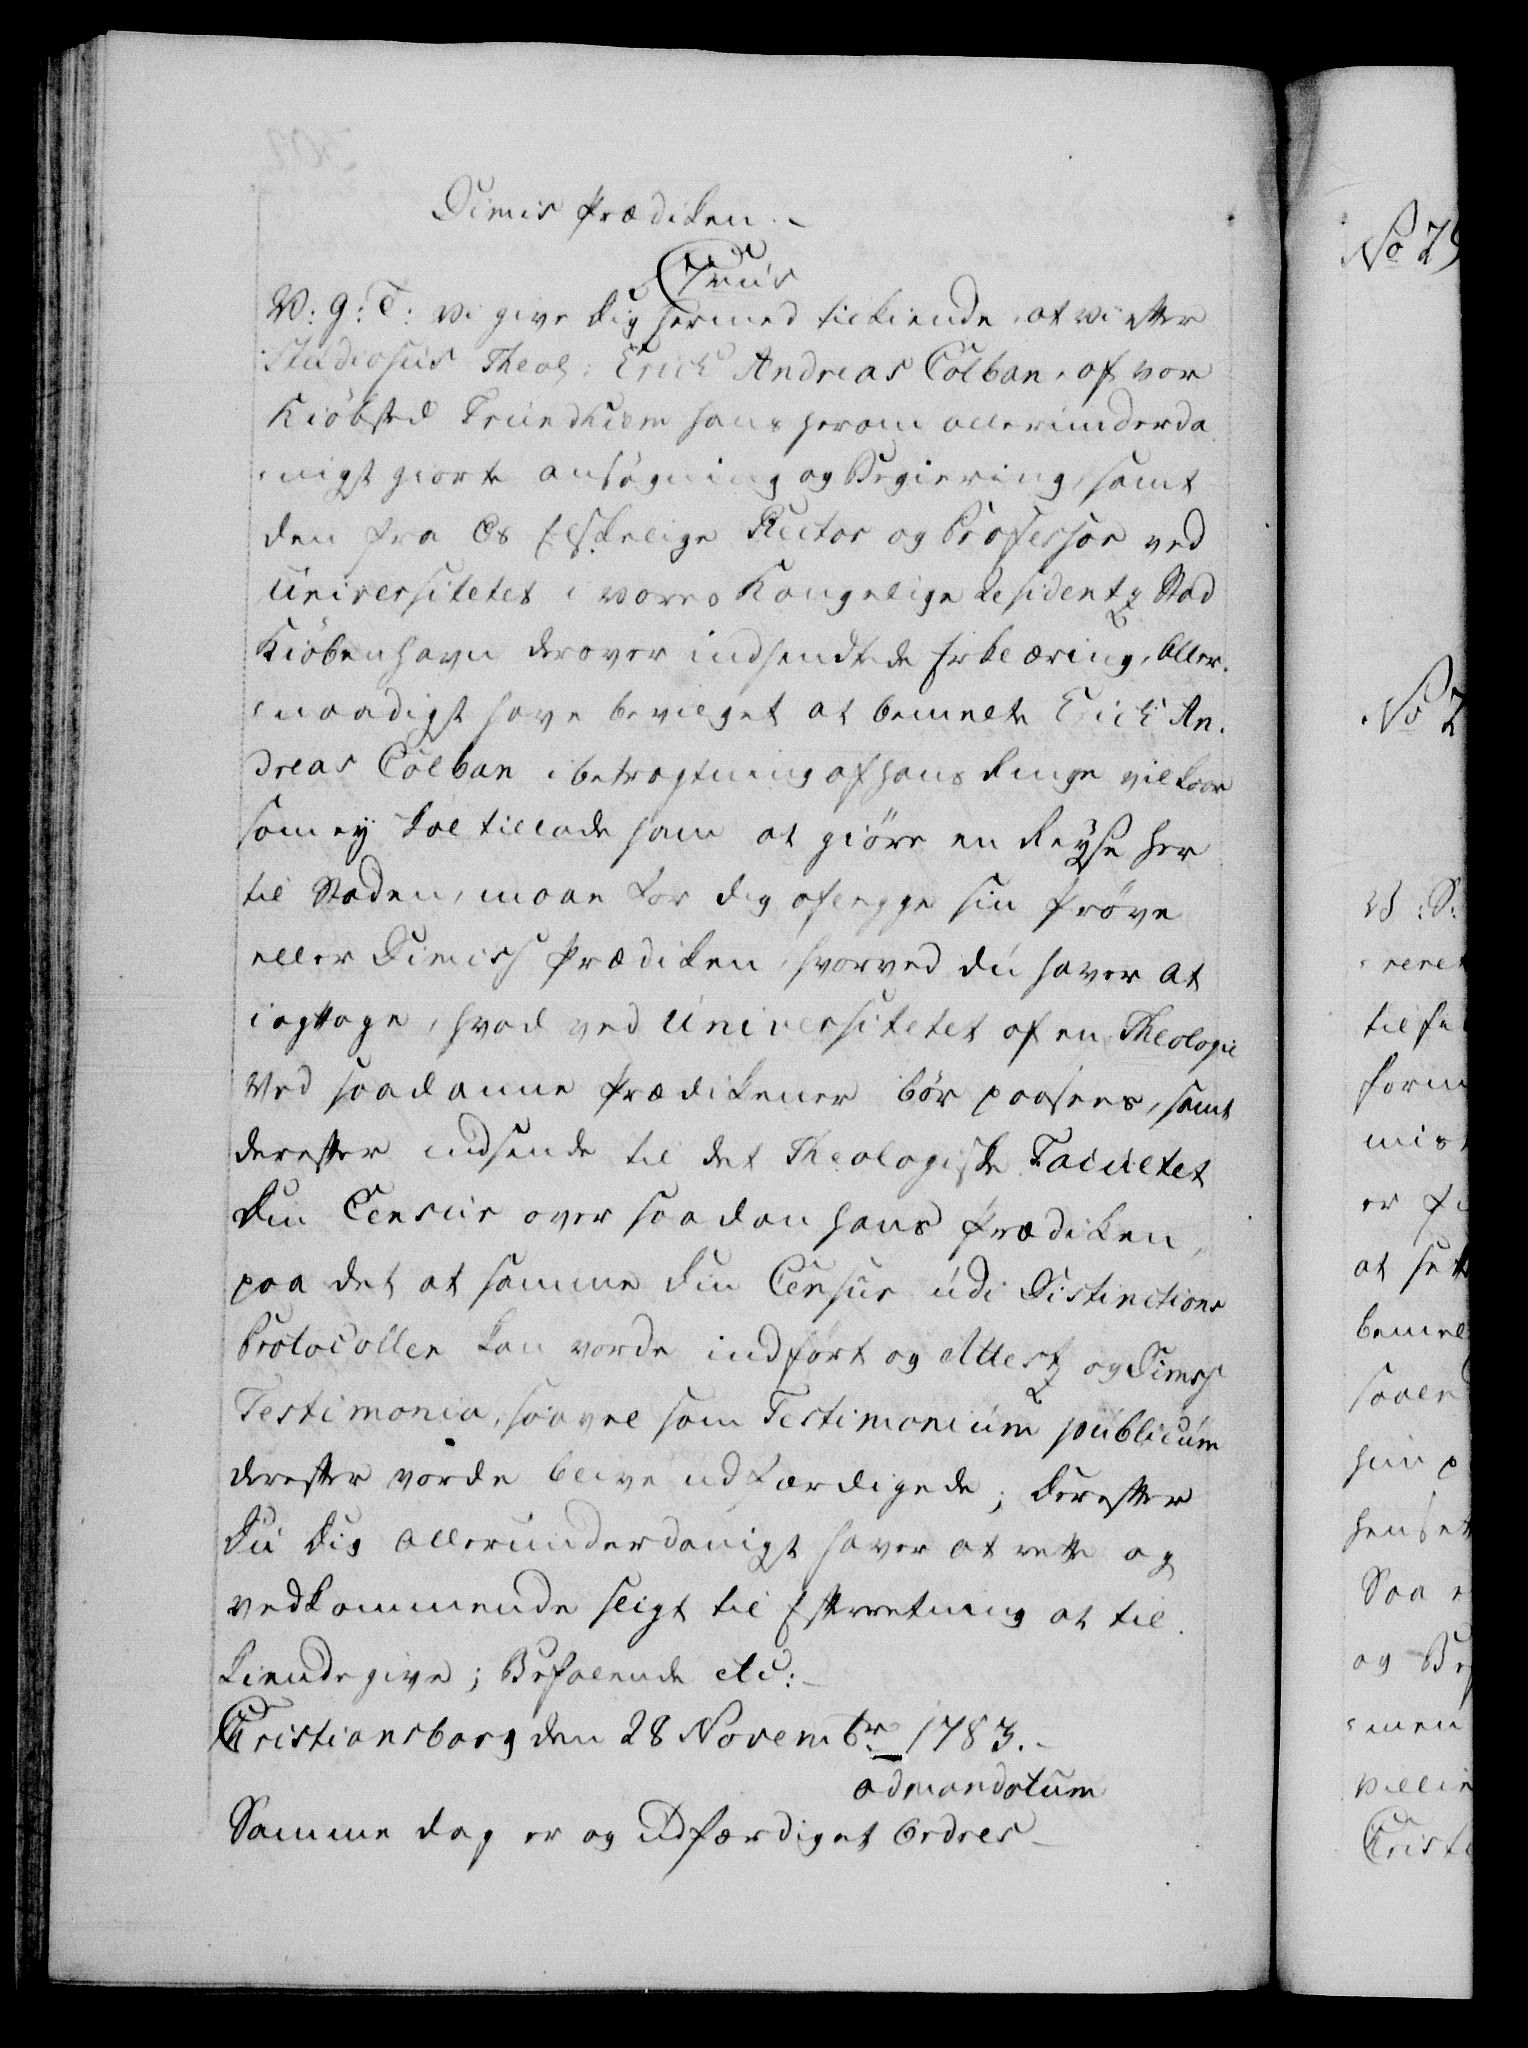 Dimis Prædiken.-
V: G: T: Vi give Dig hermed tilkiende, at vi efter
Studiosus Theol: Erich Andreas Colban, af vor
Kiöbsted Trundhiem hans herom allerunderda
nigst giorte ansögning og Begiering, samt
den fra Os Elskelige Rector og Professor ved
Universitetet i vores Kongelige Residentz Stad
Kiöbenhavn derover indsendte Erklæring, Aller-
naadigst have bevilget at bemelte Erich An-
dreas Colban i betragtning af hans ringe vilkaar
som ej skal tillade ham at giöre en Reyse her
til Staden, maae for dig aflegge sin Pröve
eller Dimiss Prædiken, hvorved du haver at
iagttage, hvad ved Universitetet af en Theologie
ved saadanne Prædikener bör paasees, samt
derefter indsende til det Theologiske Facultet
Din Censur over saadan hans Prædiken,
paa det at samme din Censur udi Distinctions
Protocollen kan vorde indfört og Attest og Dimiss
Testimonia, saavel som Testimonium publicum
derefter vorde blive udfærdigede; Derefter
Du Dig Allerunderdanigst haver at rette og
vedkommende sligt til Efterretning at til-
kiende give; Befalende etc:-
Christiansborg den 28 Novembr 1783.-
ad mandatum
Samme dag er og udfærdiget Ordres-
No
No
V: S:
tilf
form
mis
er
at sett
bemel
saa
hans
Saa
og Be
men
ville
Christi